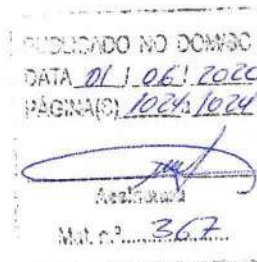 PUBLICADO NO DOM/SC
DATA 01 / 06 / 2020
PÁGINA(S) 1023 / 1024
Assinatura
Mat. nº 367